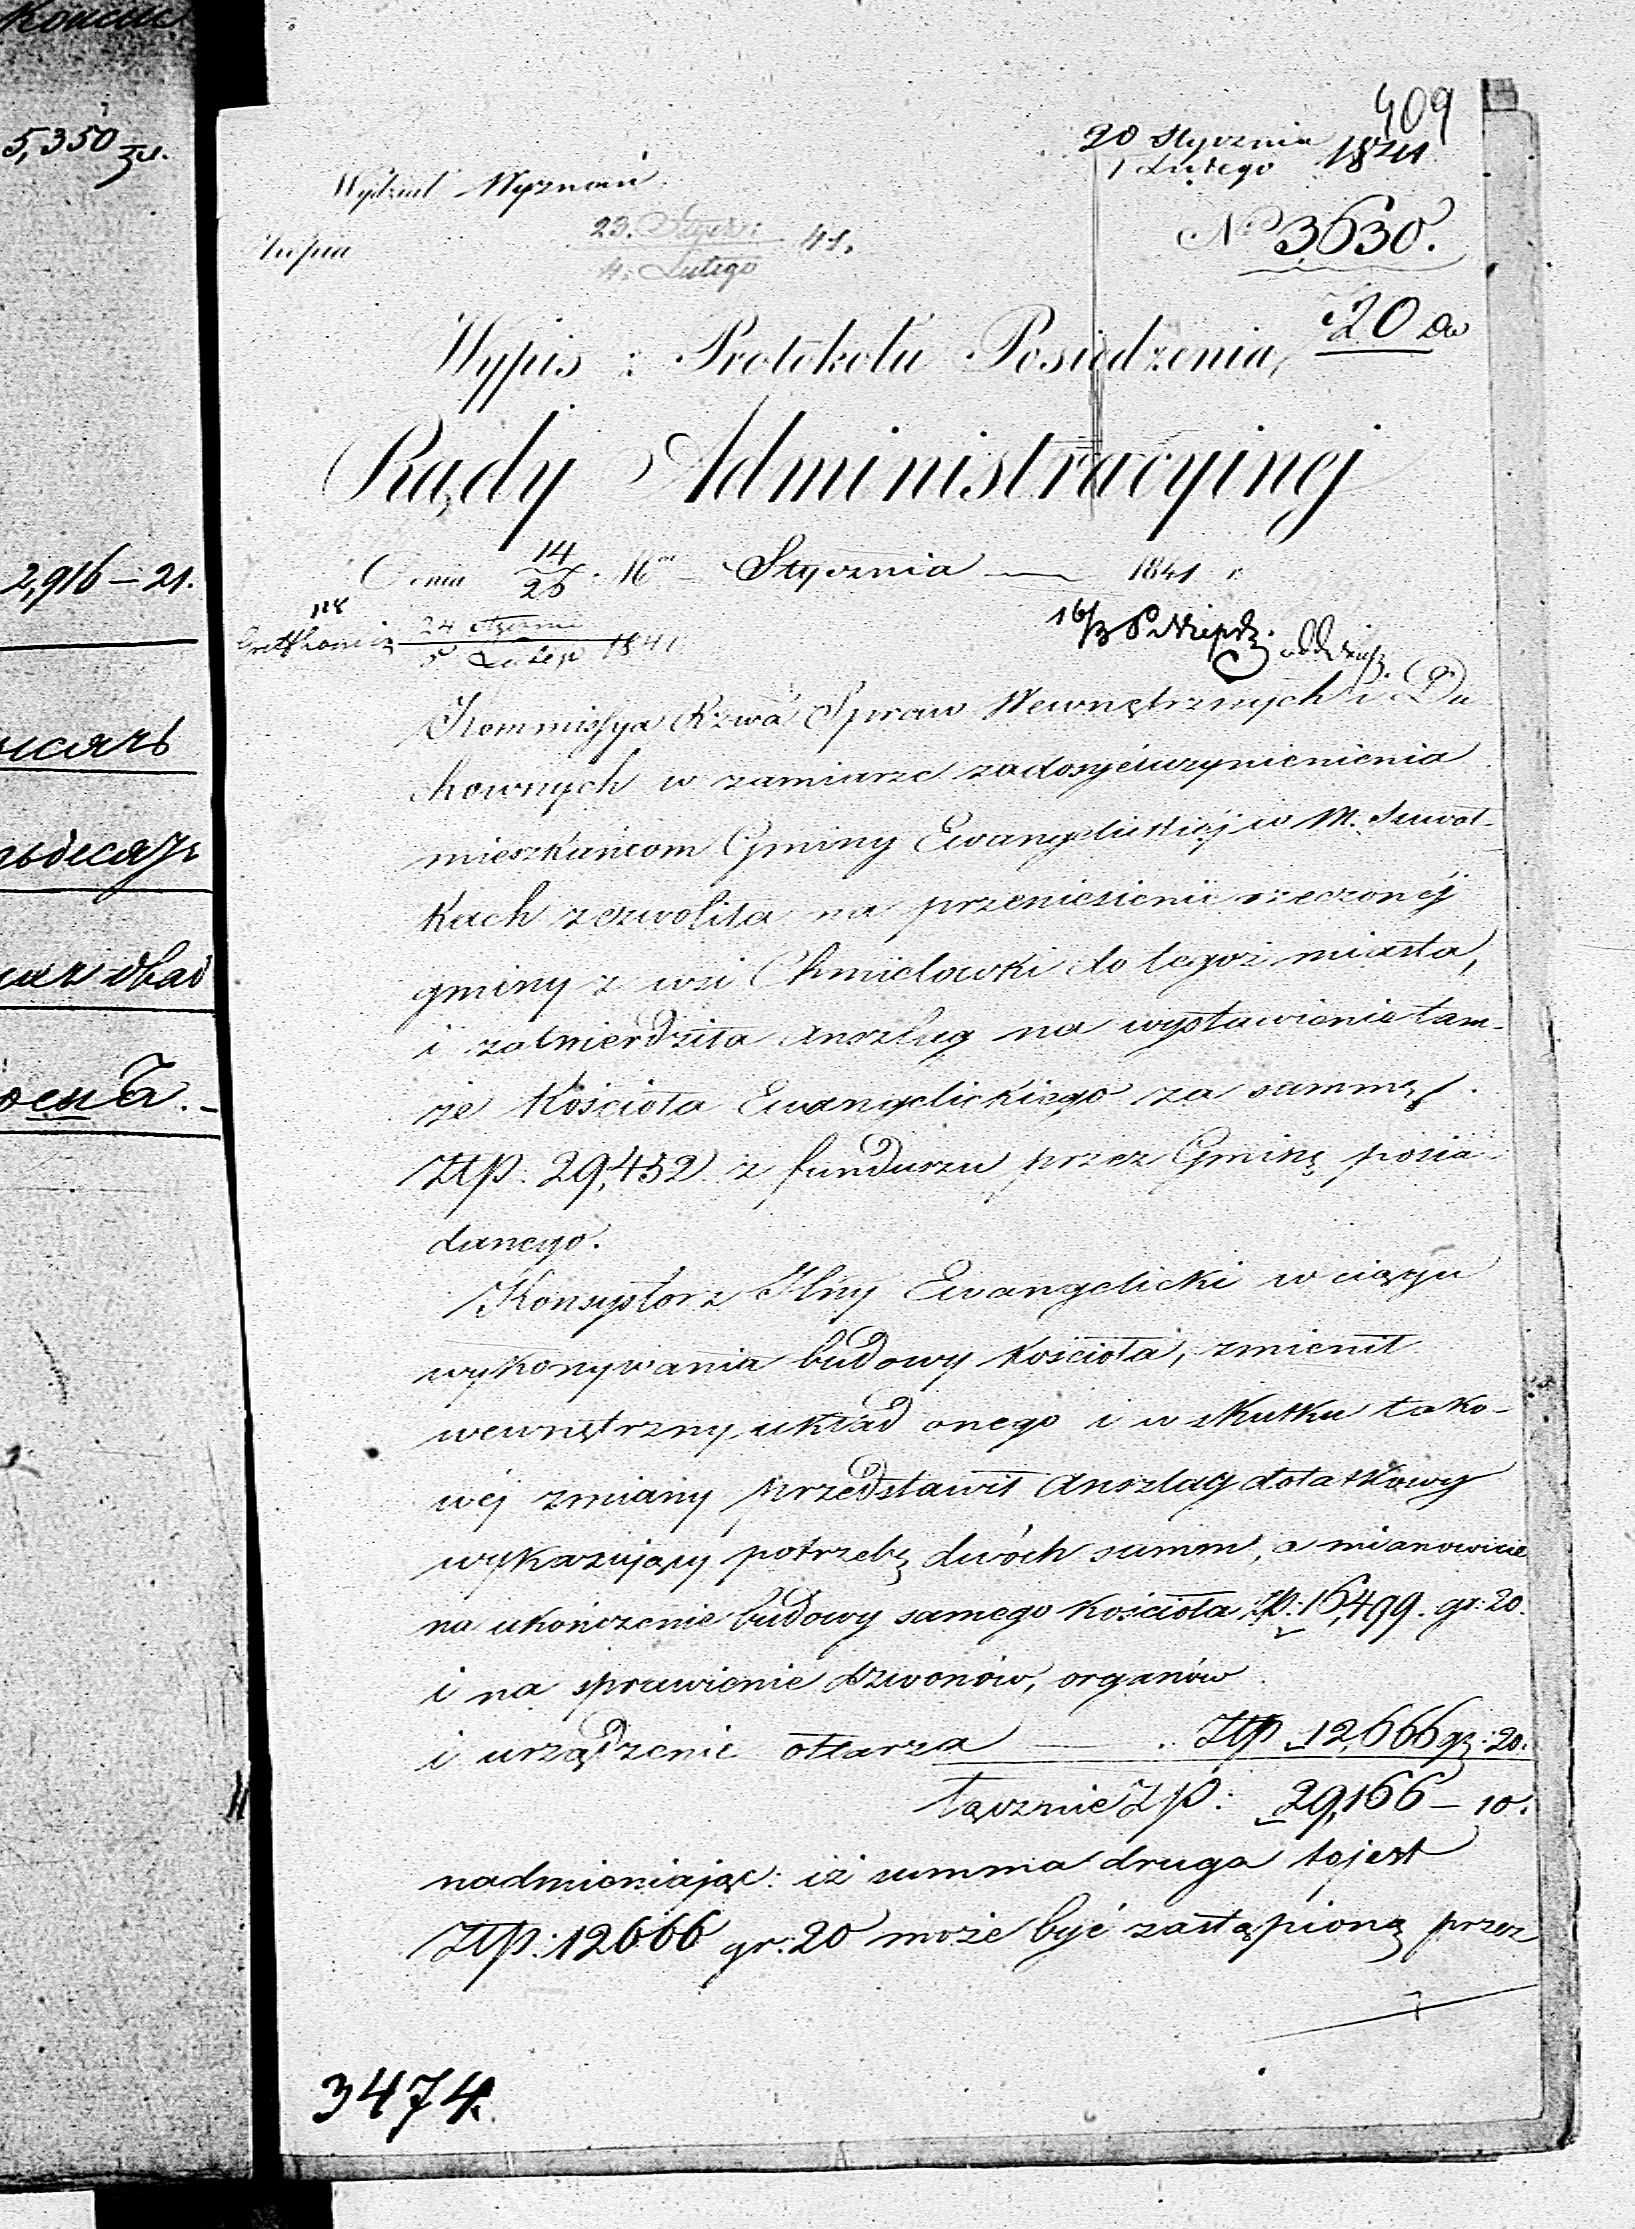 5,350
2,916 – 21.
409
20 Stycznia
1 Lutego 1841
Wydział Wyznań
23. Stycz:
4. Lutego 41.
No 3,630.
20
Wypis z Protokołu Posiedzenia,
Rady Administracyinej
Dnia 14/26 Mca Stycznia — 1841 r.
24 Stycznia
5 Lutego 1841
Kommissya Rzwa Spraw Wewnętrznych i Du
chownych w zamiarze zadosyćuczynienienia
mieszkańcom Gminy Ewangelickiéj w M. Suwał-
kach zezwoliła na przeniesienie rzeczonéj
gminy z wsi Chmielowki do tegoż miasta,
i zatwierdziła anszlag na wystawienie tam-
że Kościoła Ewangelickiego za summę
Złp. 29,432 z funduszu przez Gminę posia-
danego.
Konsystorz Jlny Ewangelicki w ciągu
wykonywania budowy kościoła, zmienił
wewnętrzny układ onego i w skutku tako-
wéj zmiany przedstawił anszlag dodatkowy
wykazujący potrzebę dwóch summ, a mianowicie
na ukończenie budowy samego kościoła złp. 16,499. gr: 20.
i na sprawienie dzwonów, organów
i urządzenie ołtarza — Złp 12,666 gr: 20.
łącznie Złp: 29,166 – 10.
nadmieniając: iż summa druga tojest
Złp: 12666 gr: 20 może być zastąpioną przez
3474.